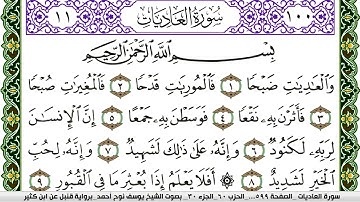 ١١ سُورَةُ العَادِيَاتِ ١٠٠
بِسْمِ اللَّهِ الرَّحْمَٰنِ الرَّحِيمِ
وَالْعَادِيَاتِ ضَبْحًا ١ فَالْمُورِيَاتِ قَدْحًا ٢ فَالْمُغِيرَاتِ صُبْحًا
٣ فَأَثَرْنَ بِهِ نَقْعًا ٤ فَوَسَطْنَ بِهِ جَمْعًا ٥ إِنَّ الْإِنْسَانَ
لِرَبِّهِ لَكَنُودٌ ٦ وَإِنَّهُ عَلَىٰ ذَٰلِكَ لَشَهِيدٌ ٧ وَإِنَّهُ لِحُبِّ
الْخَيْرِ لَشَدِيدٌ ٨ أَفَلَا يَعْلَمُ إِذَا بُعْثِرَ مَا فِي الْقُبُورِ ٩
سورة العاديات . الصفحة ٥٩٩ . الحزب ٦٠ . الجزء ٣٠ . بصوت الشيخ يوسف نوح أحمد . برواية قنبل عن ابن كثير